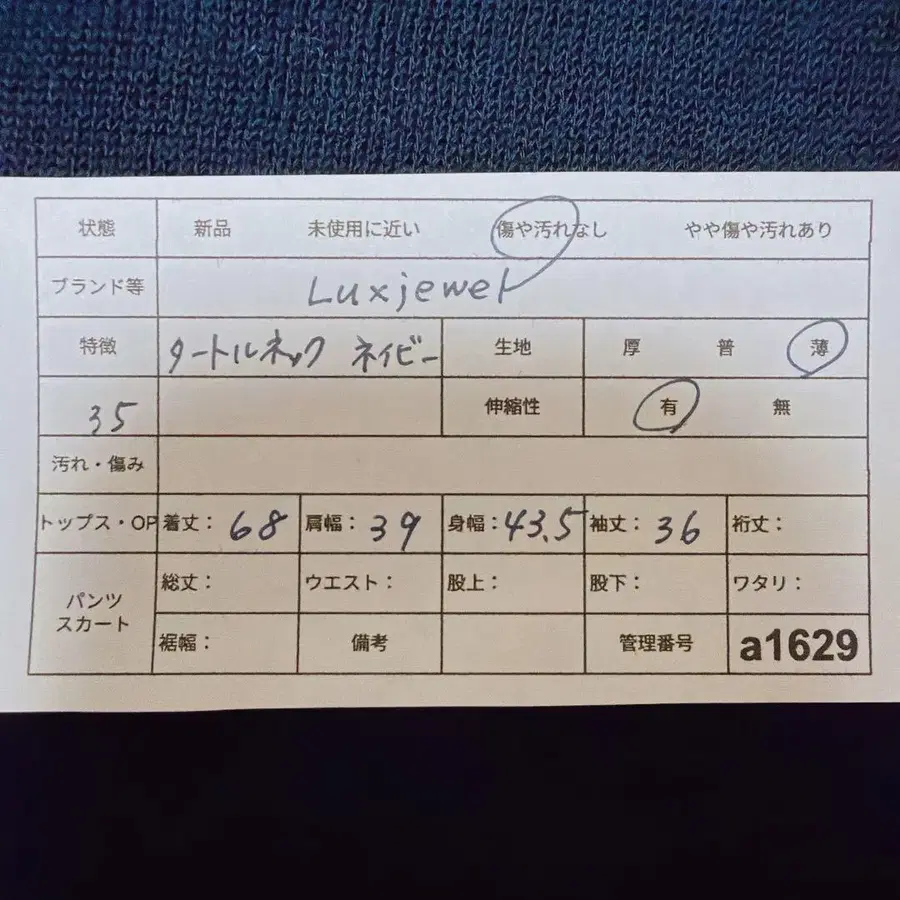 状態 新品 未使用に近い 傷や汚れなし やや傷や汚れあり
ブランド等 Luxjewel
特徴 タートルネック ネイビー 生地 厚 普 薄
35 伸縮性 有 無
汚れ・傷み
トップス・OP 着丈: 68 肩幅: 39 身幅: 43.5 袖丈: 36 裄丈:
パンツ スカート 総丈: ウエスト: 股上: 股下: ワタリ:
裾幅: 備考 管理番号 a1629